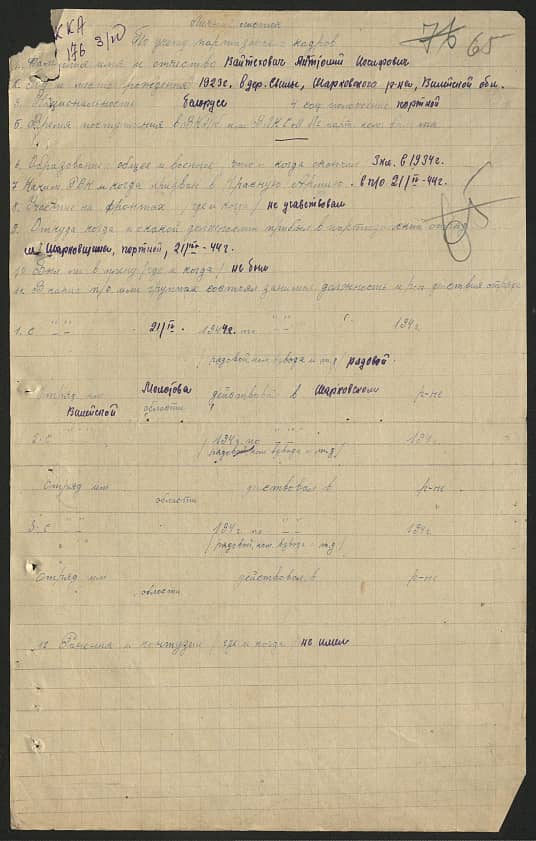 ККА
176 3/IV
Личный листок
76 65
По учету партизанских кадров
1. Фамилия имя и отчество Войтехович Антоний Иосифович
2. Год и место рождения 1923 г. в дер. Шарковского р-на, Вилейской обл.
3. Национальность Белорусс 4 соц положение портной
5. Время поступления в ВКП/б или ВЛКСМ № парт. ком. билета —
6. Образование общее и военное когда окончил 3 кл. в 1934 г.
7 Каким РВК и когда призван в Красную Армию. в п/о 21/IV-44 г.
8. Участие на фронтах /где и когда/ не учавствовал
9. Откуда когда и с какой должности прибыл в партизанский отряд
65
м. Шарковщина, портной, 21/IV-44 г.
10. Был ли в плену /где и когда/ не был
11. В каких п/о или группах состоял занимал должность и р-н действия отряда
1. с " " 21/IV. 1944 г. по " " 194 г.
/рядовой ком взвода и т.д/ рядовой.
Отряд им Молотова действовал в Шарковском р-не
Вилейской области
2. с " " 194 г. по " " 194 г.
/рядовой ком взвода и т.д/
Отряд им действовал в р-не
области
3. с " " 194 г. по " " 194 г.
/рядовой, ком. взвода и т.д/
Отряд им действовал в р-не
области
12 Ранения и контузии /где и когда/ не имел